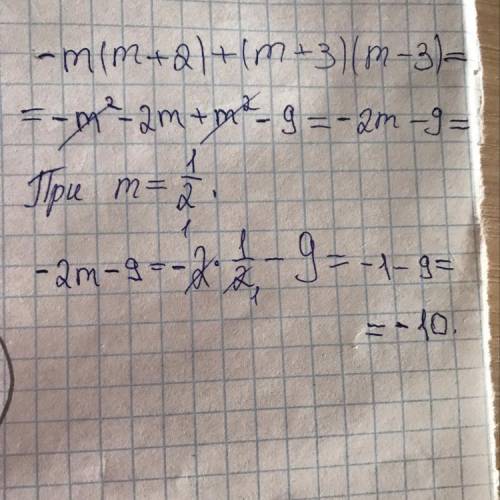 -m(m+2)+(m+3)(m-3)=
= -m² - 2m + m² - 9 = -2m - 9 =
При m = 1/2.
-2m - 9 = -2 · 1/2 - 9 = -1 - 9 =
= -10.